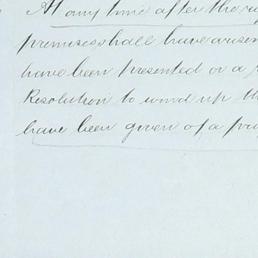 At any time after the re
premises shall have arisen
have been presented or a
Resolution to wind up th
have been given of a pro